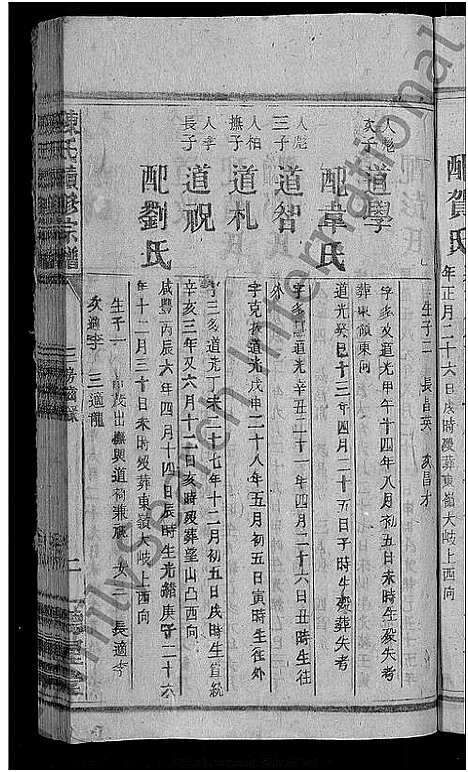 配賀氏
年正月二十六日戌時歿葬東嶺大岐上西向
生子二 長昌英 次昌才
人彪次子
道學
字 道光甲午十四年八月初五日未時生歿失考
葬東嶺東向
配韋氏
道光癸巳十三年四月二十五日子時生歿葬失考
人彪三子
道智
字 道光辛丑二十一年四月二十六日丑時生往
人柏撫子
道札
字克 道光戊申二十八年五月初五日寅時生往外
人孝長子
道祝
字三多道光丁未二十七年十二月初五日戌時生宣統
辛亥三年又六月十二日亥時歿葬望山凸西向
配劉氏
咸豐丙辰六年四月十四日辰時生光緒庚子二十六
年十二月三十日未時歿葬東嶺大岐上西向
生子一 出撫與道 兼祧 女三 長適李
次適李 三適龍
陳氏 宗譜
FamilySearch International